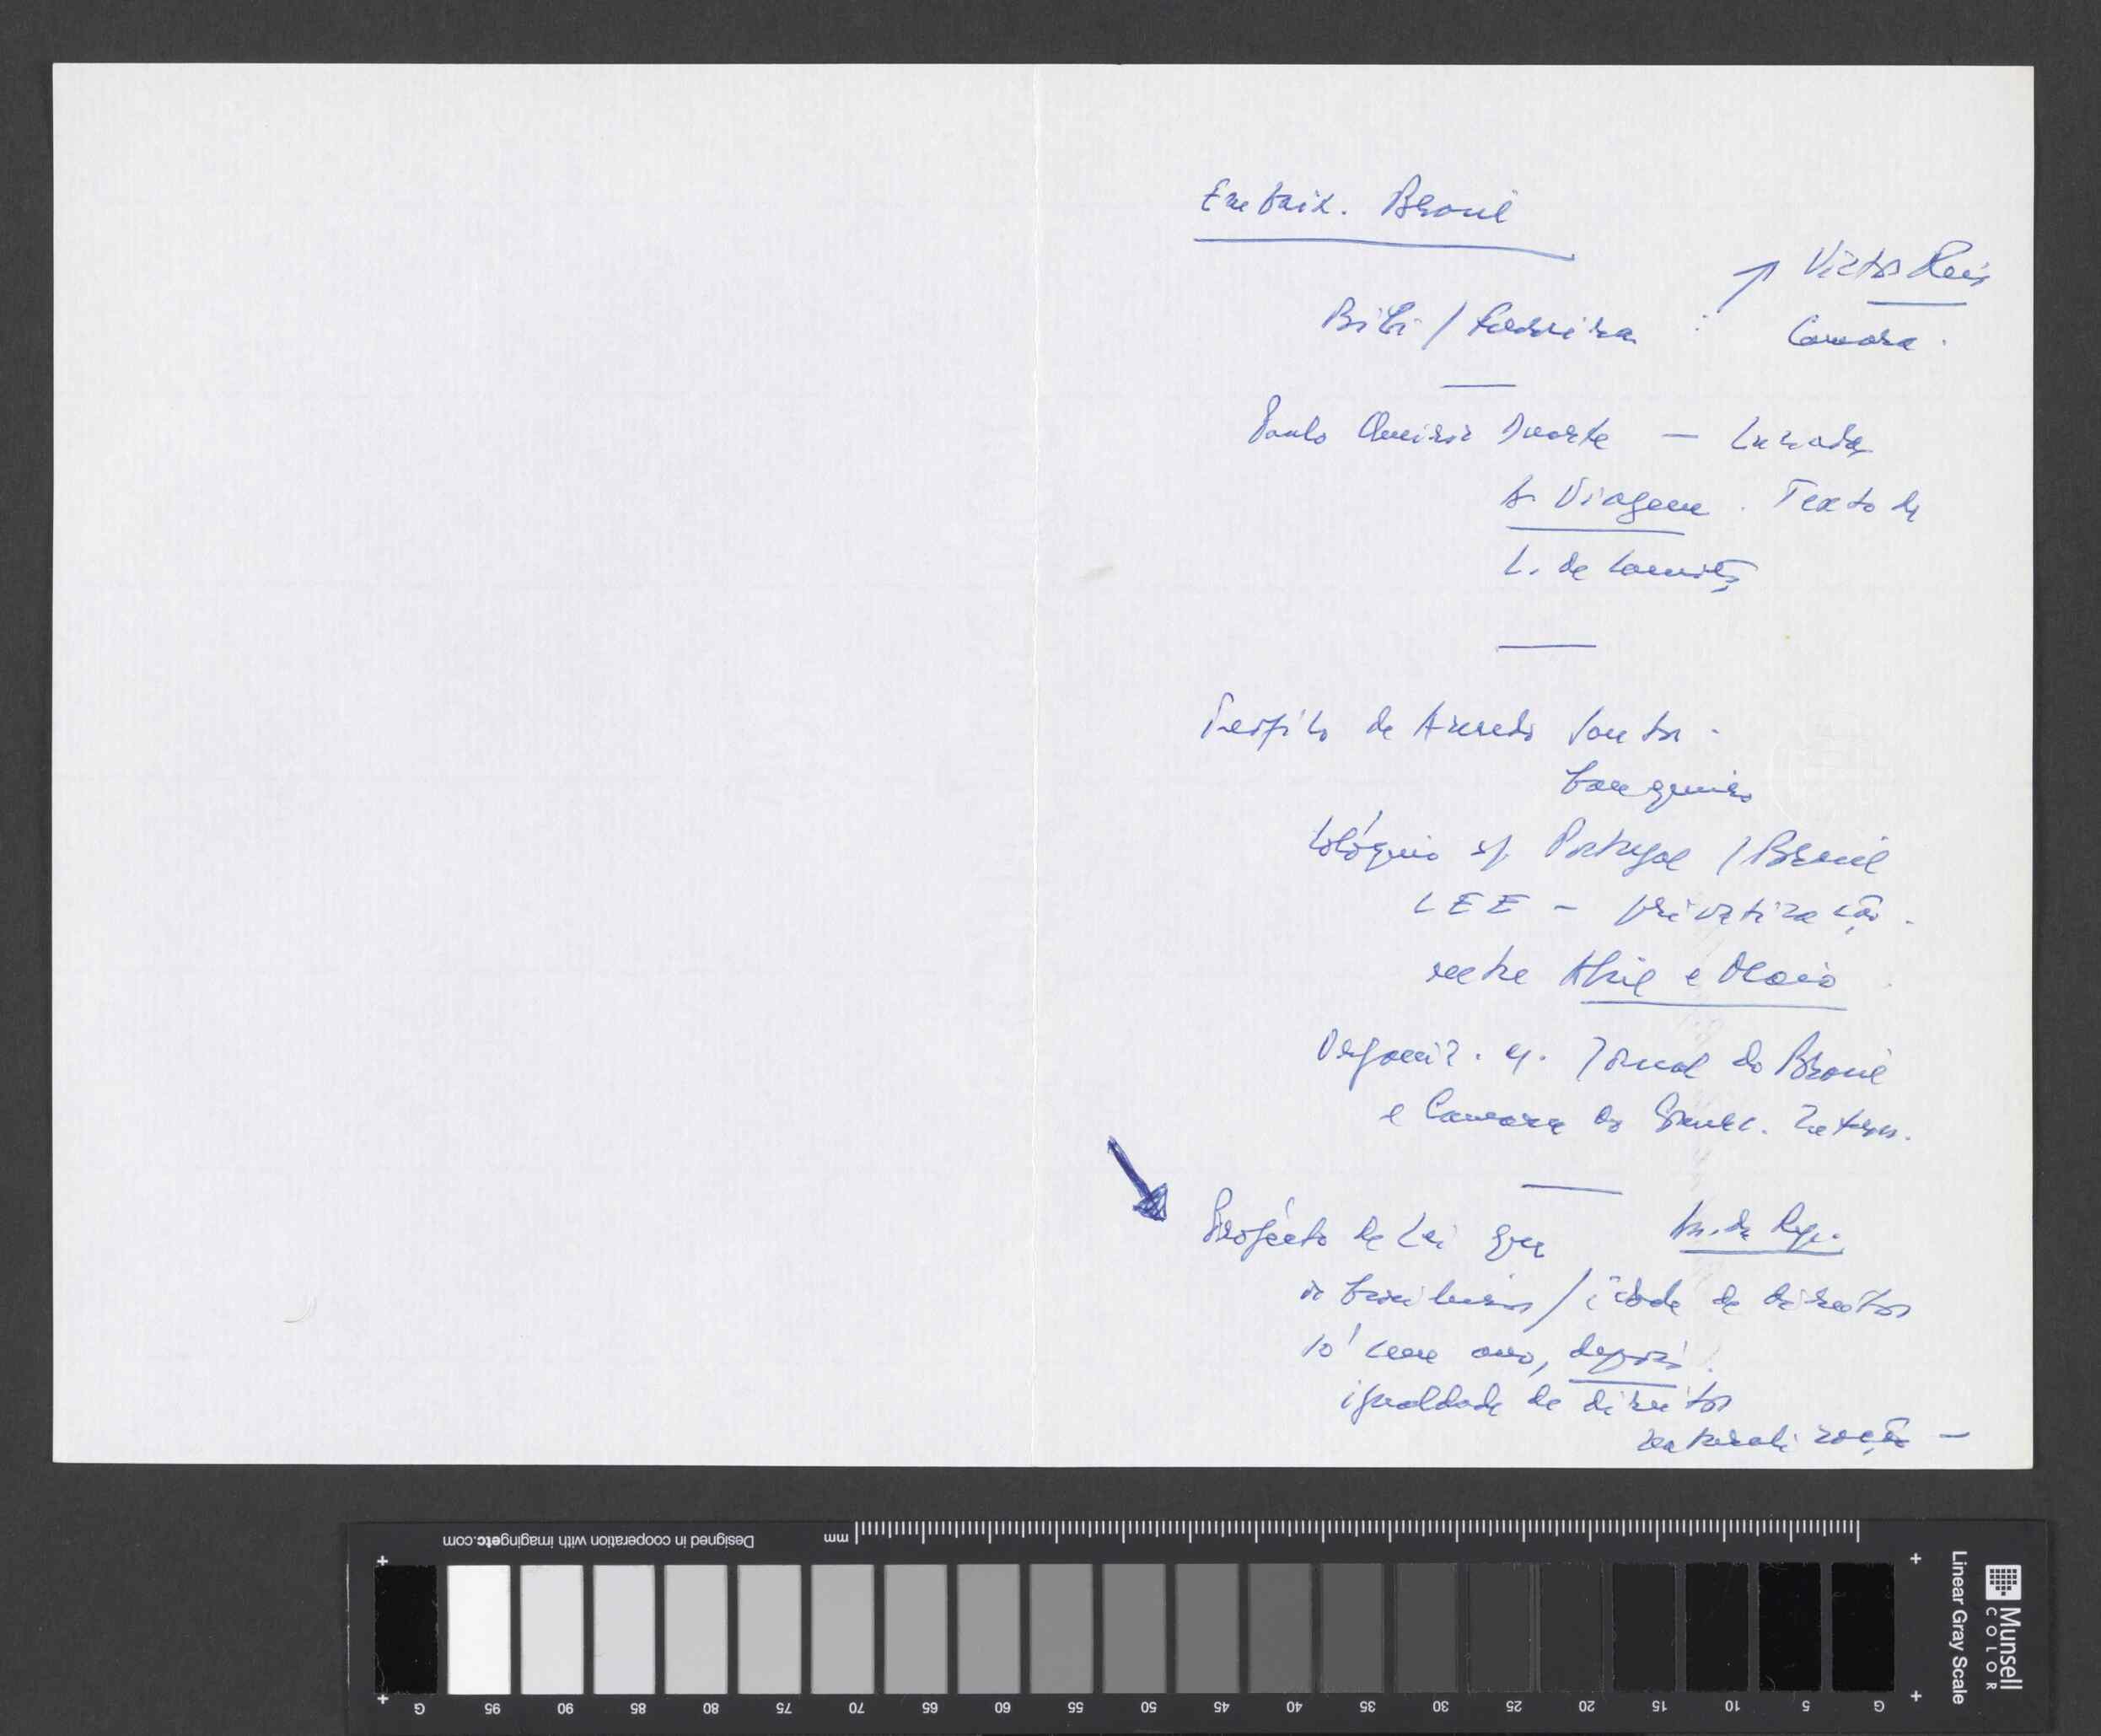 Embaix. Brasil
Victor Reis
Bibi / Ferreira :
Camara.
Paulo Queiroz Duarte — Lusíadas
A Viagem. Texto de
L. de Camões
Teófilo de Azeredo Santos -
banqueiro
Colóquio s/. Portugal / Brasil
CEE - privatização.
entre Abril e Maio
Organiz. c/. Jornal do Brasil
e Camara de Comerc. Intern.
Projecto de Lei que
As. da Rep.
os brasileiros / de direitos
só um ano, depois.
igualdade de direitos
naturalização —
Designed in cooperation with imagingetc.com
mm
G 95 90 85 80 75 70 65 60 55 50 45 40 35 30 25 20 15 10 5 G
Linear Gray Scale
Munsell
COLOR